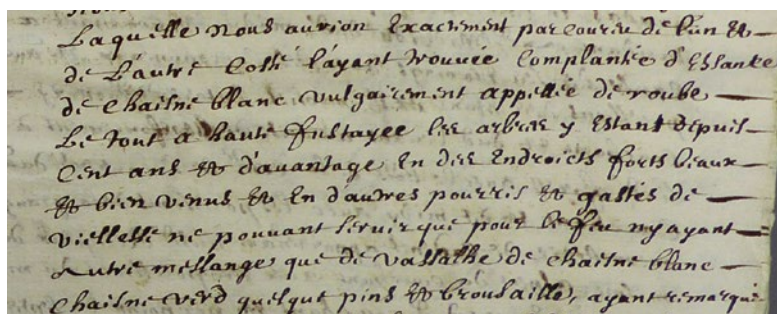 Laquelle nous aurion exactement parcoureu de l'un et
de L'autre Costé l'ayant trouvée Complantée d'Essante
de Chaisne blanc vulgairement appellée de roube
Le tout a haute fustayee les arbres y Estant depuis
Cent ans et d'avantage En des Endroicts forts beaux
et bien venus et En d'autres pourris et gastés de
viellesse ne pouvant servir que pour le feu ny ayant
autre meslange que de vassathe de Chaisne blanc
Chaisne verd quelque pins et brousaille, ayant remarqué